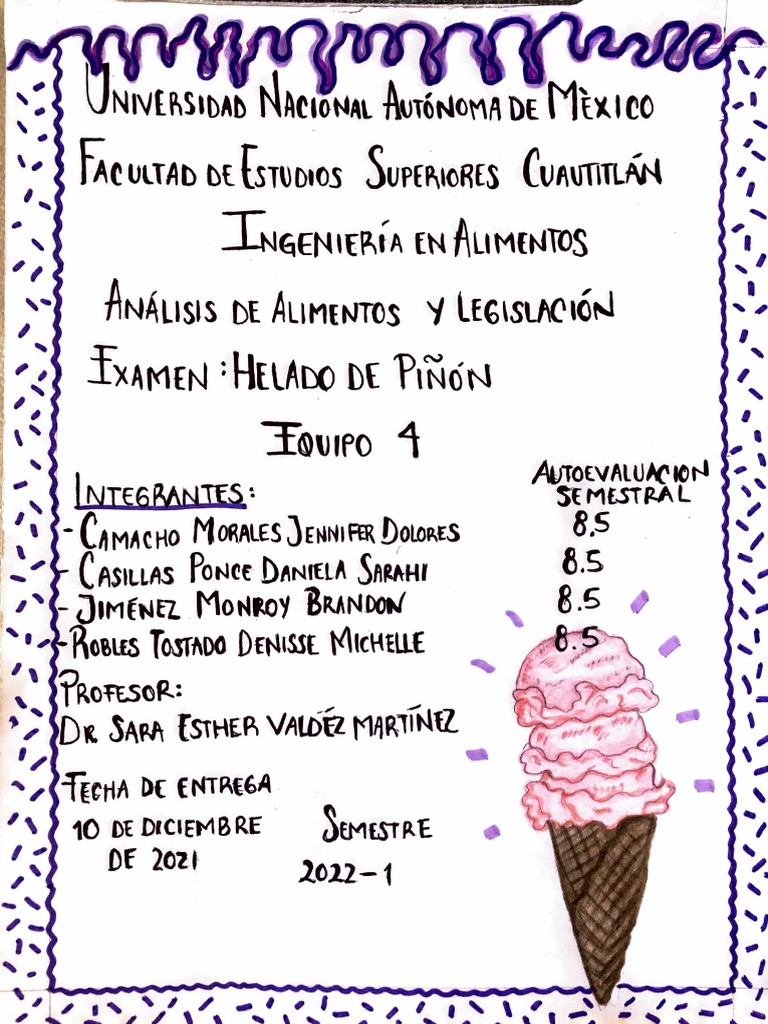 UNIVERSIDAD NACIONAL AUTÓNOMA DE MÈXICO
FACULTAD DE ESTUDIOS SUPERIORES CUAUTITLÁN
INGENIERÍA EN ALIMENTOS
ANÁLISIS DE ALIMENTOS Y LEGISLACIÓN
EXAMEN : HELADO DE PIÑÓN
EQUIPO 4
INTEGRANTES:
AUTOEVALUACION
SEMESTRAL
- CAMACHO MORALES JENNIFER DOLORES 8.5
- CASILLAS PONCE DANIELA SARAHI 8.5
- JIMÉNEZ MONROY BRANDON 8.5
- ROBLES TOSTADO DENISSE MICHELLE 8.5
PROFESOR:
DR. SARA ESTHER VALDÉZ MARTÍNEZ
FECHA DE ENTREGA
10 DE DICIEMBRE
DE 2021
SEMESTRE
2022-1